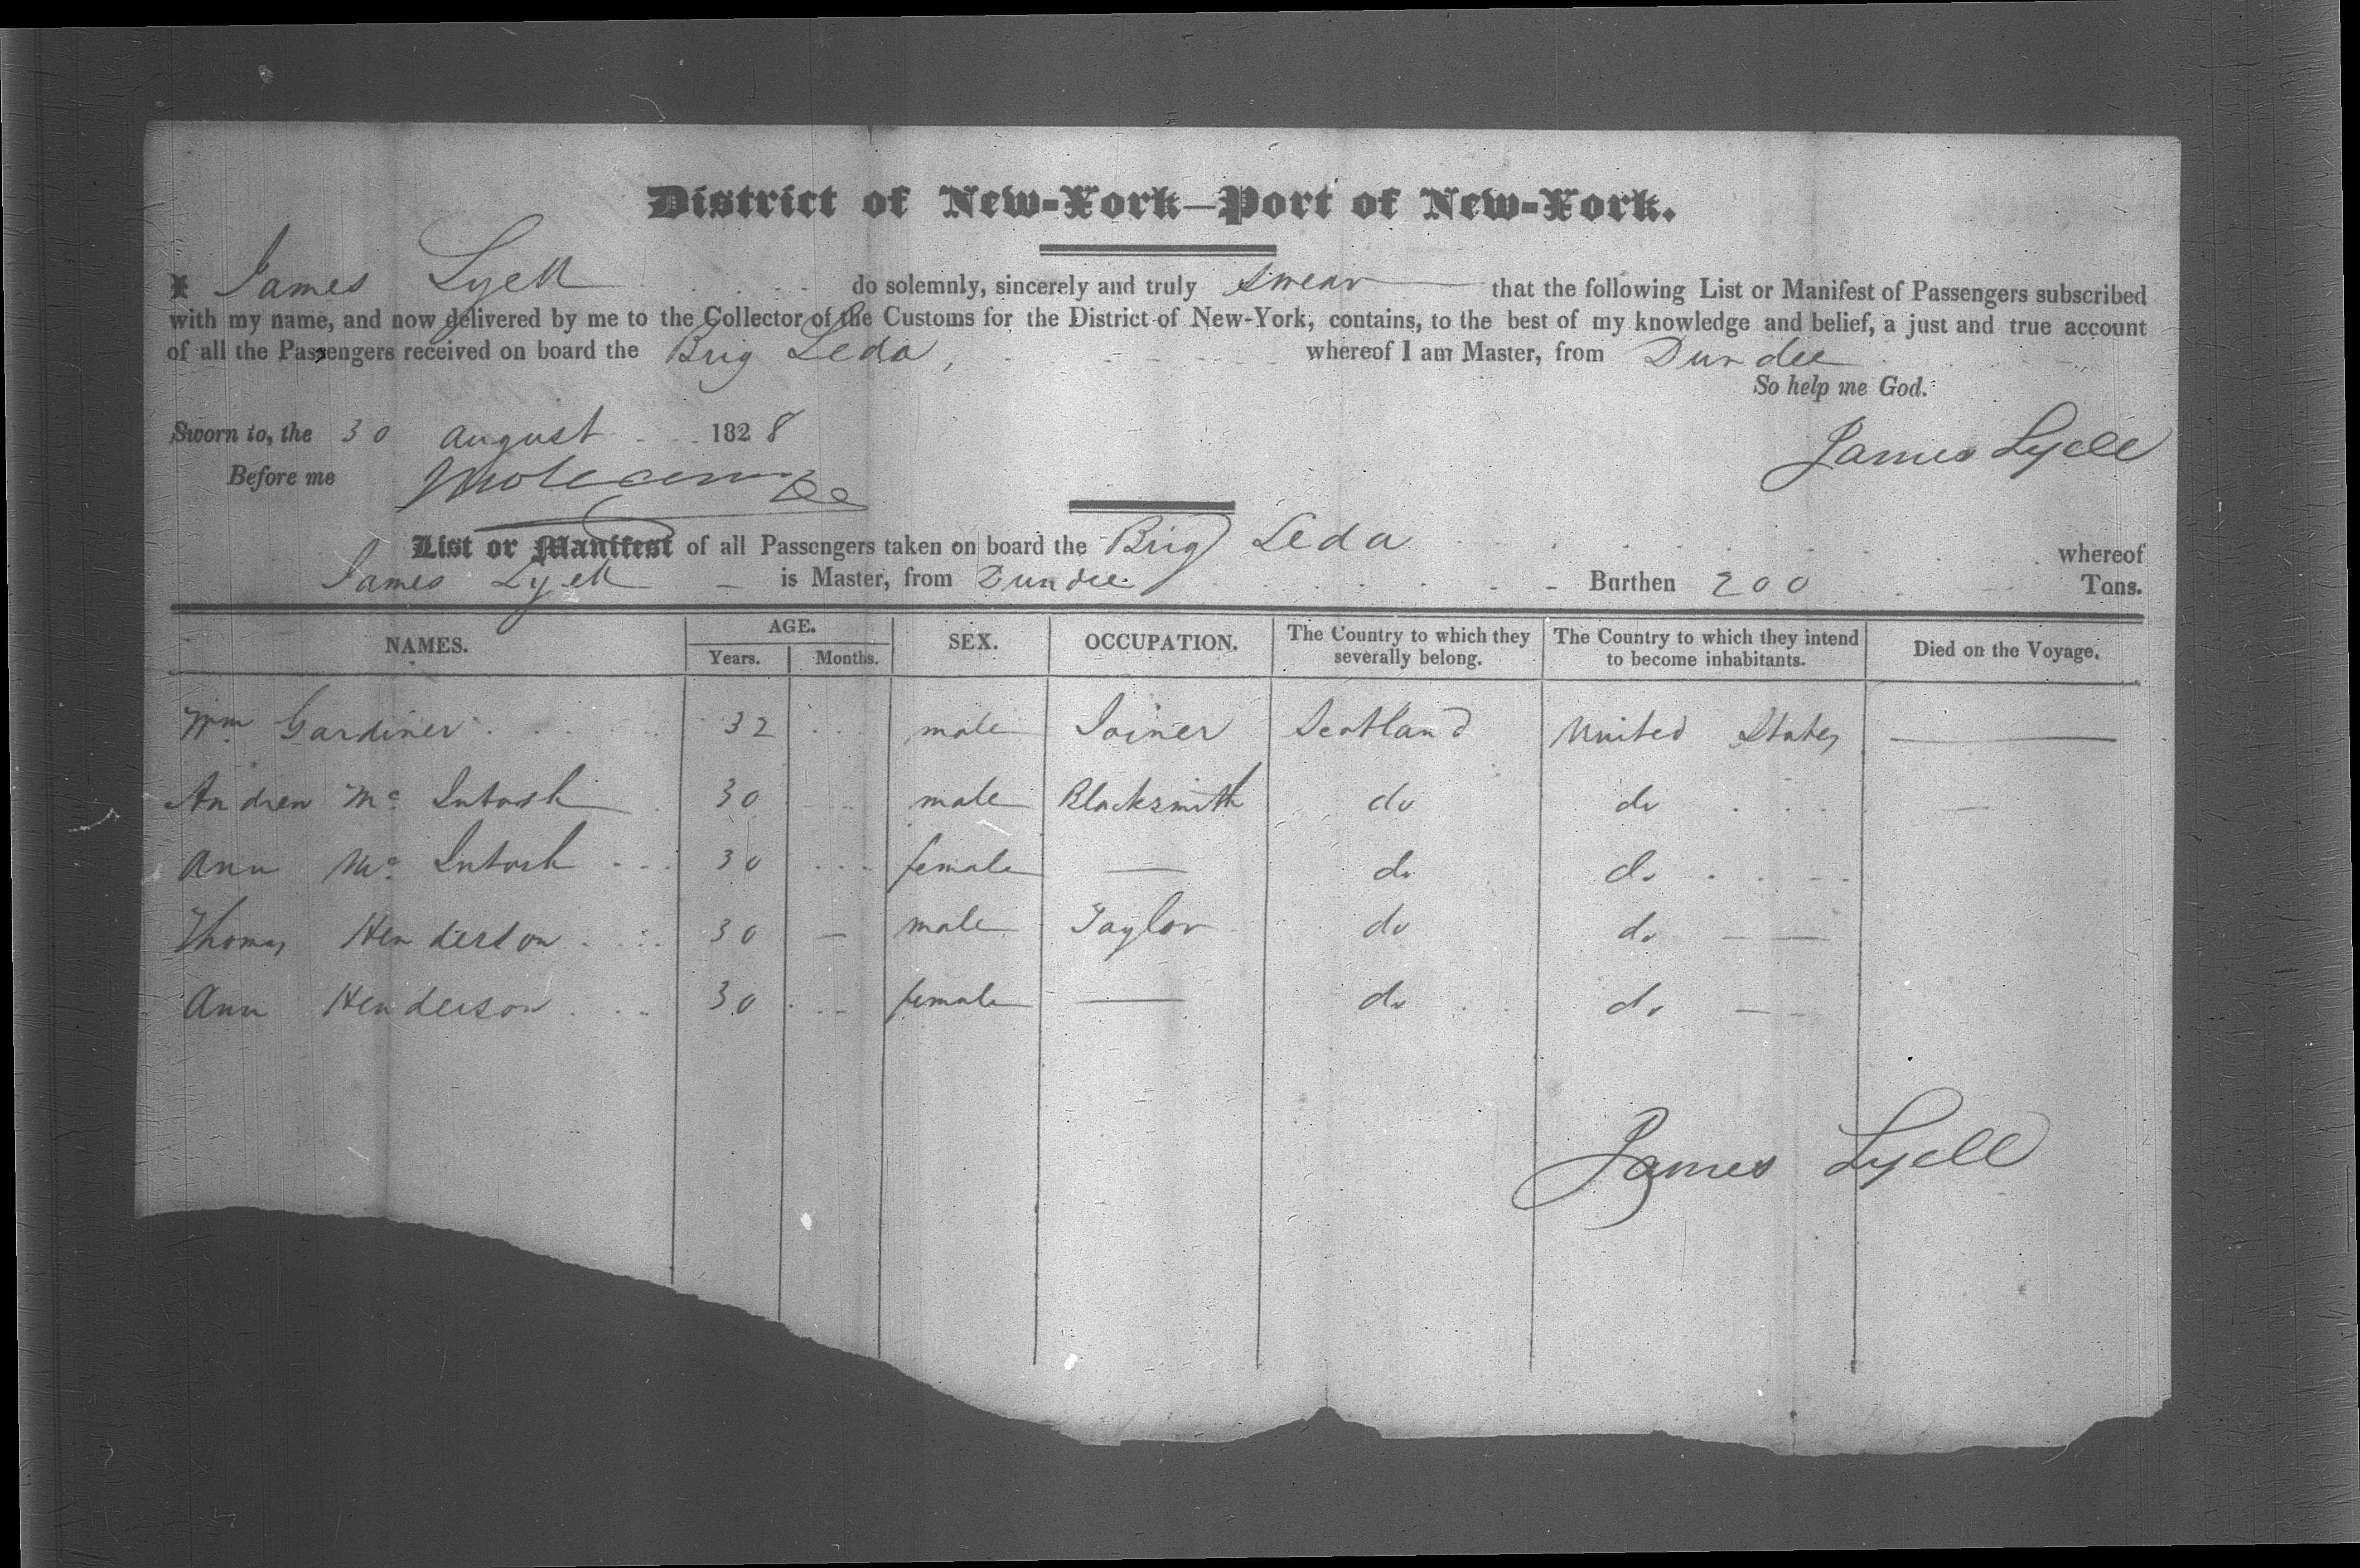 District of New-York—Port of New-York.
I James Lyell do solemnly, sincerely and truly swear that the following List or Manifest of Passengers subscribed
with my name, and now delivered by me to the Collector of the Customs for the District of New-York, contains, to the best of my knowledge and belief, a just and true account
of all the Passengers received on board the Brig Leda, whereof I am Master, from Dundee
So help me God.
Sworn to, the 30 august 1828 James Lyell
Before me
List or Manifest of all Passengers taken on board the Brig Leda whereof
James Lyell is Master, from Dundee Burthen 200 Tons.
NAMES. AGE. Years. Months. SEX. OCCUPATION. The Country to which they severally belong. The Country to which they intend to become inhabitants. Died on the Voyage.
Wm Gardiner 32 male Joiner Scotland United States —
Andrew Mc Intosh 30 male Blacksmith do do —
Ann Mc Intosh 30 female — do do
Thomas Henderson 30 — male Taylor do do — —
Ann Henderson 30 female — do do —
James Lyell